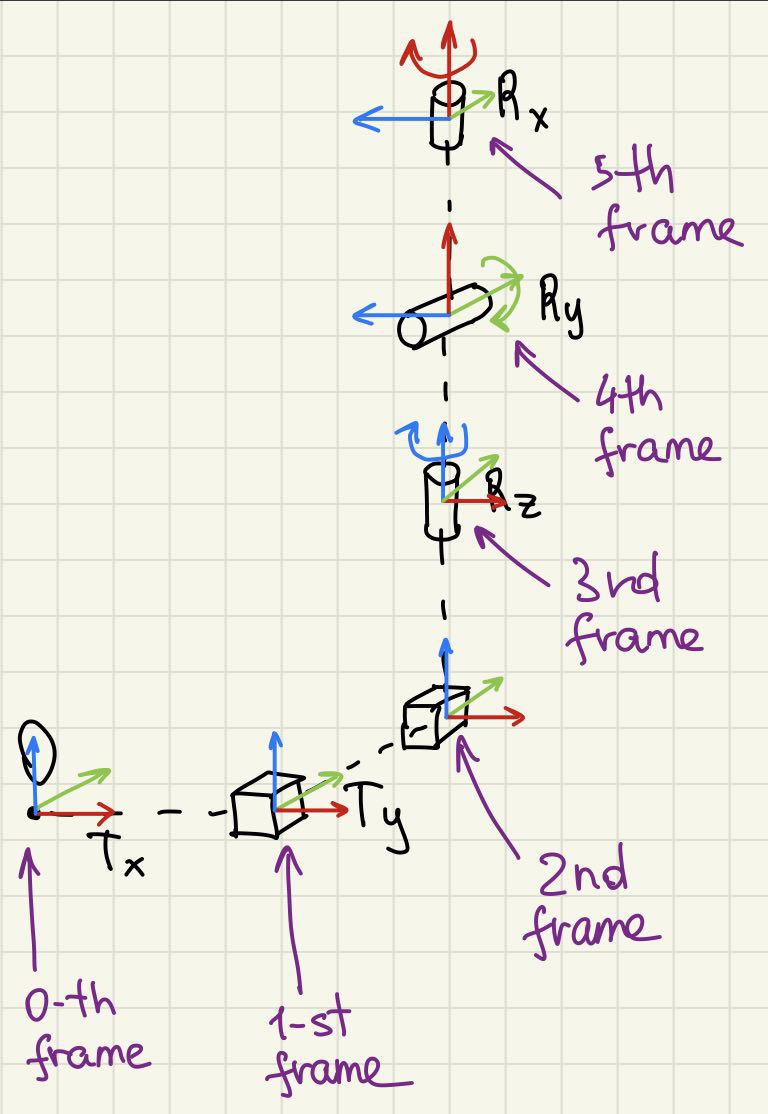 Rx
5-th
frame
Ry
4th
frame
Rz
3rd
frame
Ty
2nd
frame
Tx
0-th
frame
1-st
frame